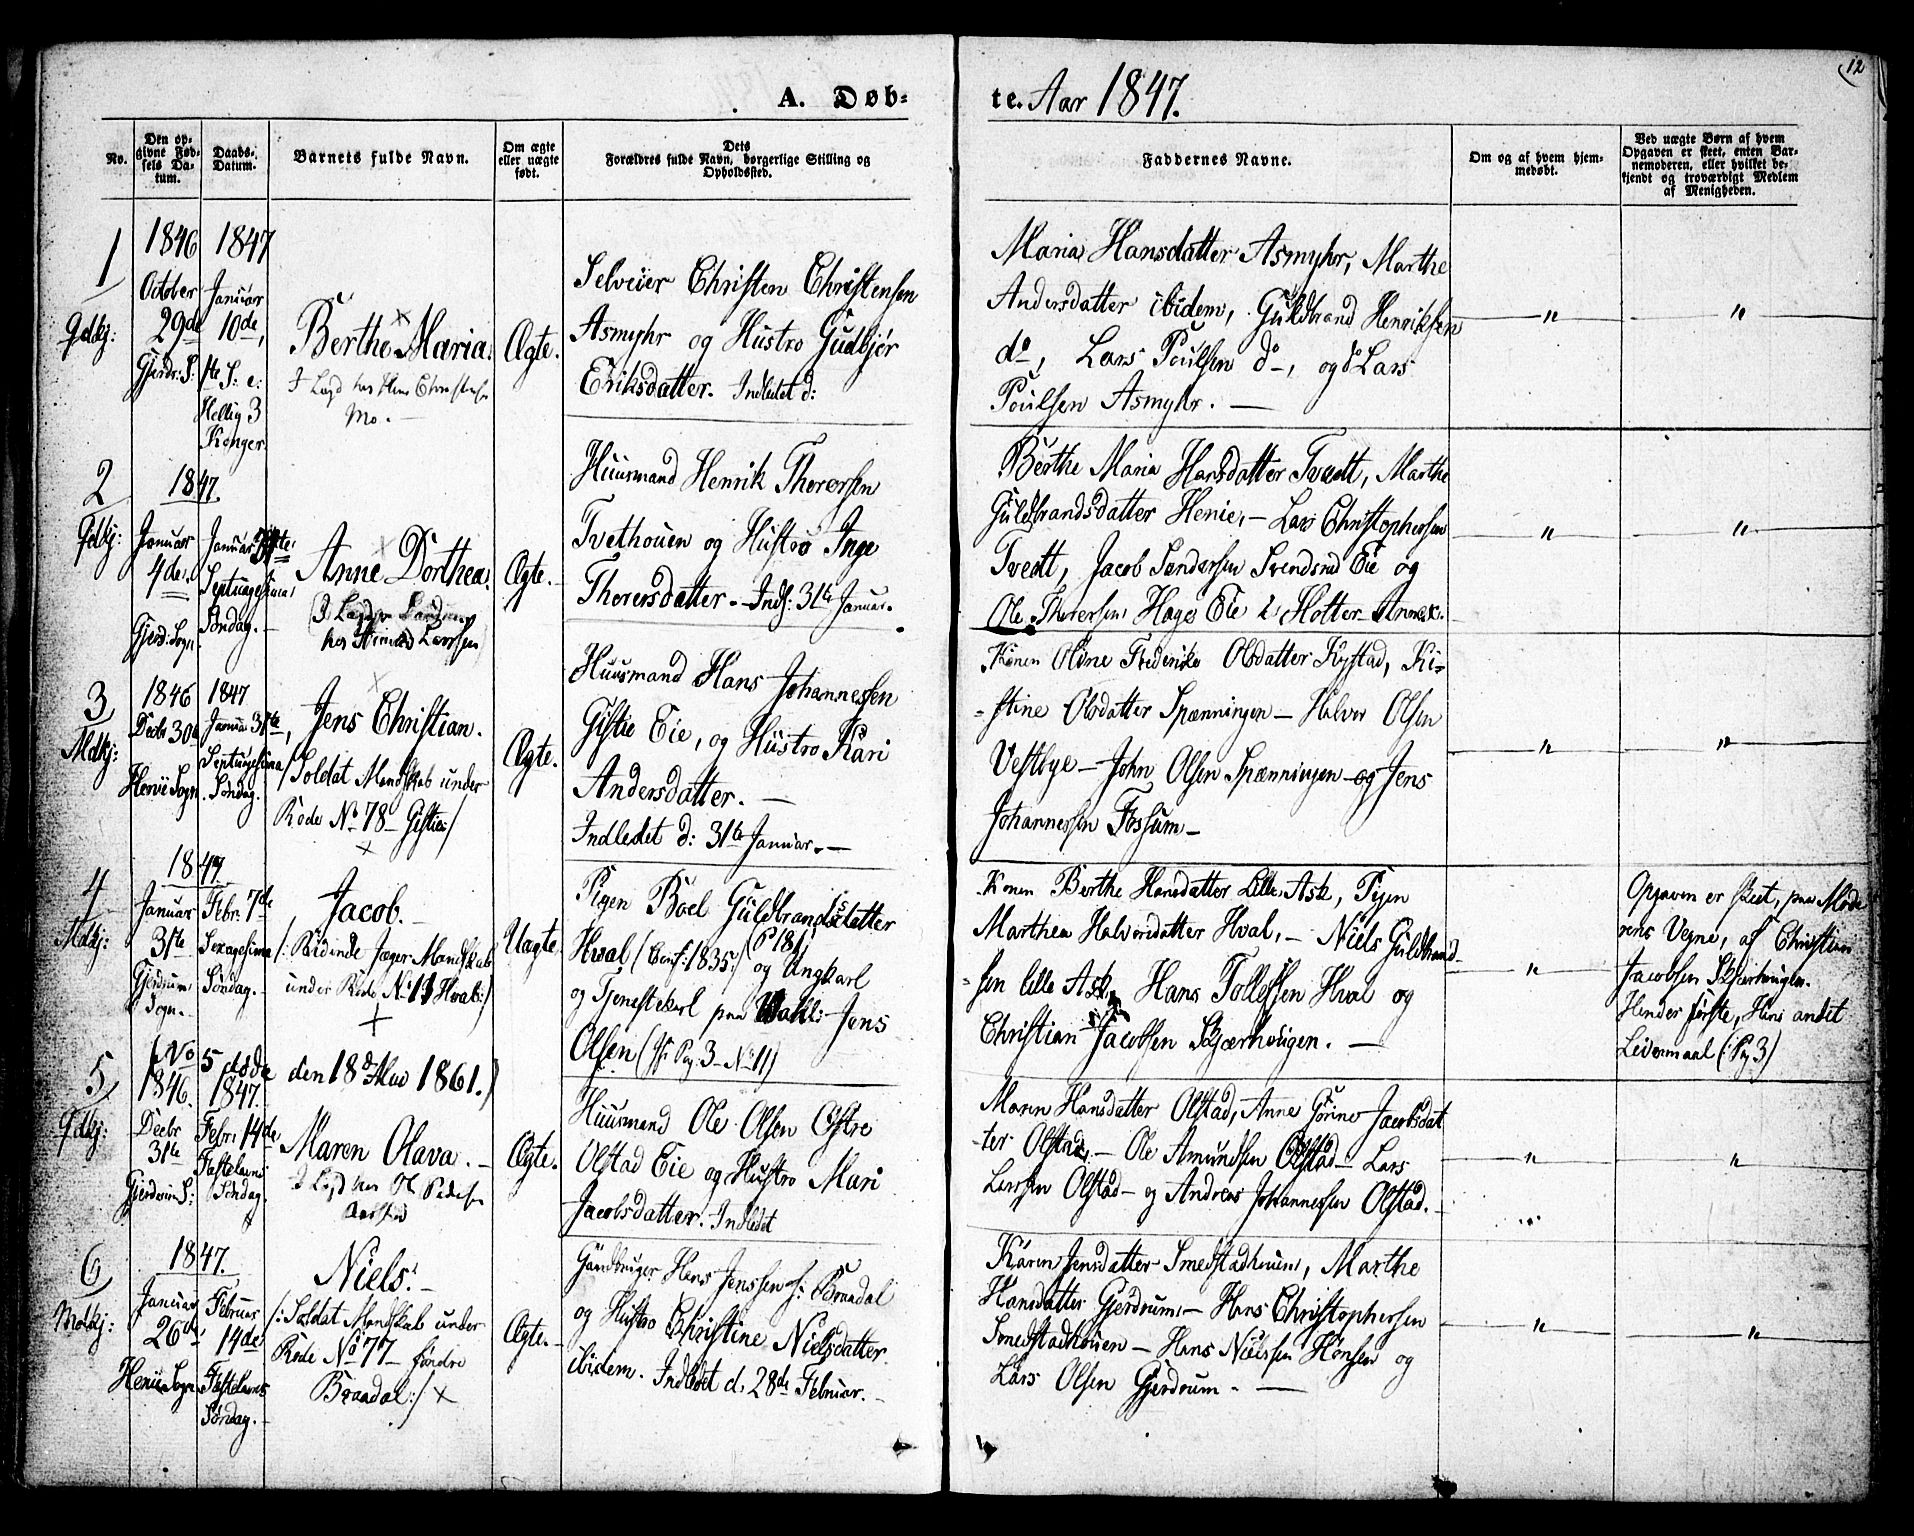 12
A. Døb-
te. Aar 1847.
No.
Den op-
givne Fød-
sels Da-
tum.
Daabs-
Datum.
Barnets fulde Navn.
Om ægte
eller uægte
født.
Dets
Forældres fulde Navn, borgerlige Stilling og
Opholdssted.
Faddernes Navne.
Om og af hvem hjem-
medøbt.
Ved uægte Børn af hvem
Opgaven er skeet, enten Bar-
nemoderen, eller hvilket be-
kjendt og troværdigt Medlem
af Menigheden.
1
Gdkj:
1846
October
29de
Gjerdr: S:
1847
Januar
10de,
1ste S: e:
Hellig 3
Konger.
Berthe Maria.
I Lægd hos Hans Christensen
Mo. -
Ægte.
Selveier Christen Christensen
Asmyhr og Hustro Gudbjør
Eriksdatter. Indledet d:
Maria Hansdatter Asmyhr, Marthe
Andersdatter ibidem, Guldbrand Henriksen
do, Lars Poulsen do, og Lars
Poulsen Asmyhr. —
"
"
2
Gdkj:
1847.
Januar
4de
Gjerd: Sogn
Januar 31te
Septuagesima
Søndag. -
Anne Dorthea.
Ægte.
Huusmand Henrik Thorersen
Tvethouen og Hustro Inge
Thorersdatter. Indl: 31te Januar.
Berthe Maria Hansdatter Tvedt, Marthe
Guldbrandsdatter Henie, - Lars Christophersen
Tvedt, Jacob Sandersen Svendsrud Eie og
Ole Thorersen Hages Eie i Holter Annex.
"
"
3
Mdkj:
1846
Decbr 30te
Henie Sogn
1847
Januar 31te,
Septuagesima
Søndag.
Jens Christian.
/Soldat Mandskab under
Rode No 78 - Gistie:/
Ægte.
Huusmand Hans Johannessen
Gistie Eie, og Hustro Kari
Andersdatter. —
Indledet d: 31te Januar. —
Konen Oline Frederike Olsdatter Kystad, Ki-
-stine Olsdatter Spænningen - Halvor Olsen
Vestbye - John Olsen Spænningen - og Jens
Johannessen Fossum -
"
"
4
Mdkj:
1847
Januar
31te
Gjerdrum
Sogn.
Febr: 7de
Sexagesima
Søndag. -
Jacob. -
/: Ridende Jæger Mandskab
under Rode No 11 Hval:/
Uægte.
Pigen Boel Guldbrandsdatter
Hval (Conf: 1835:/ og Ungkarl
og Tjenestekarl paa Jens
Olsen (Pag: 3 - No 11)
Konen Berthe Hansdatter Lille Ask, Pigen
Marthea Halvorsdatter Hval, - Niels Guldbrand-
-sen lille Ask, Hans Tollefsen Hval og
Christian Jacobsen Skjærholigen. —
"
Opgaven er skeet, paa Mode
rens Vegne, af Christian
Jacobsen
Hendes første, Hans andet
Leiermaal (: Pag 3)
(No 5 døde den 18de Mai 1861.)
5
Gdkj:
1846.
Decbr
31te
Gjerdrum S:
1847.
Febr: 14de
Fastelavns
Søndag.
Maren Olava. -
I Lægd hos Ol Pedersen
Ægte.
Huusmand Ole Olsen Østre
Olstad Eie og Hustro Mari
Jacobsdatter. Indledet
Maren Hansdatter Olstad, Anne Gurine Jacobsdat
-ter Olstad, - Ole Amundsen Olstad - Lars
Larssen Olstad - og Andreas Johannessen Olstad.
"
"
6
Mdkj:
1847.
Januar
26de
Henie Sogn
Februar
14de
Fastelavns
Søndag.
Niels. -
/: Soldat Mandskab under
Rode No 77 - søndre
Braadal:/
Ægte.
Gaardbruger Hans Jenssen s: Braadal
og Hustro Christine Nielsdatter
ibidem. Indledet d: 28de Februar. -
Karen Jensdatter Smedstadhouen, Marthe
Hansdatter Gjerdrum, - Hans Christophersen
Smedstadhouen - Hans Nielssen Hønsen og
Lars Olsen Gjerdrum. —
"
"